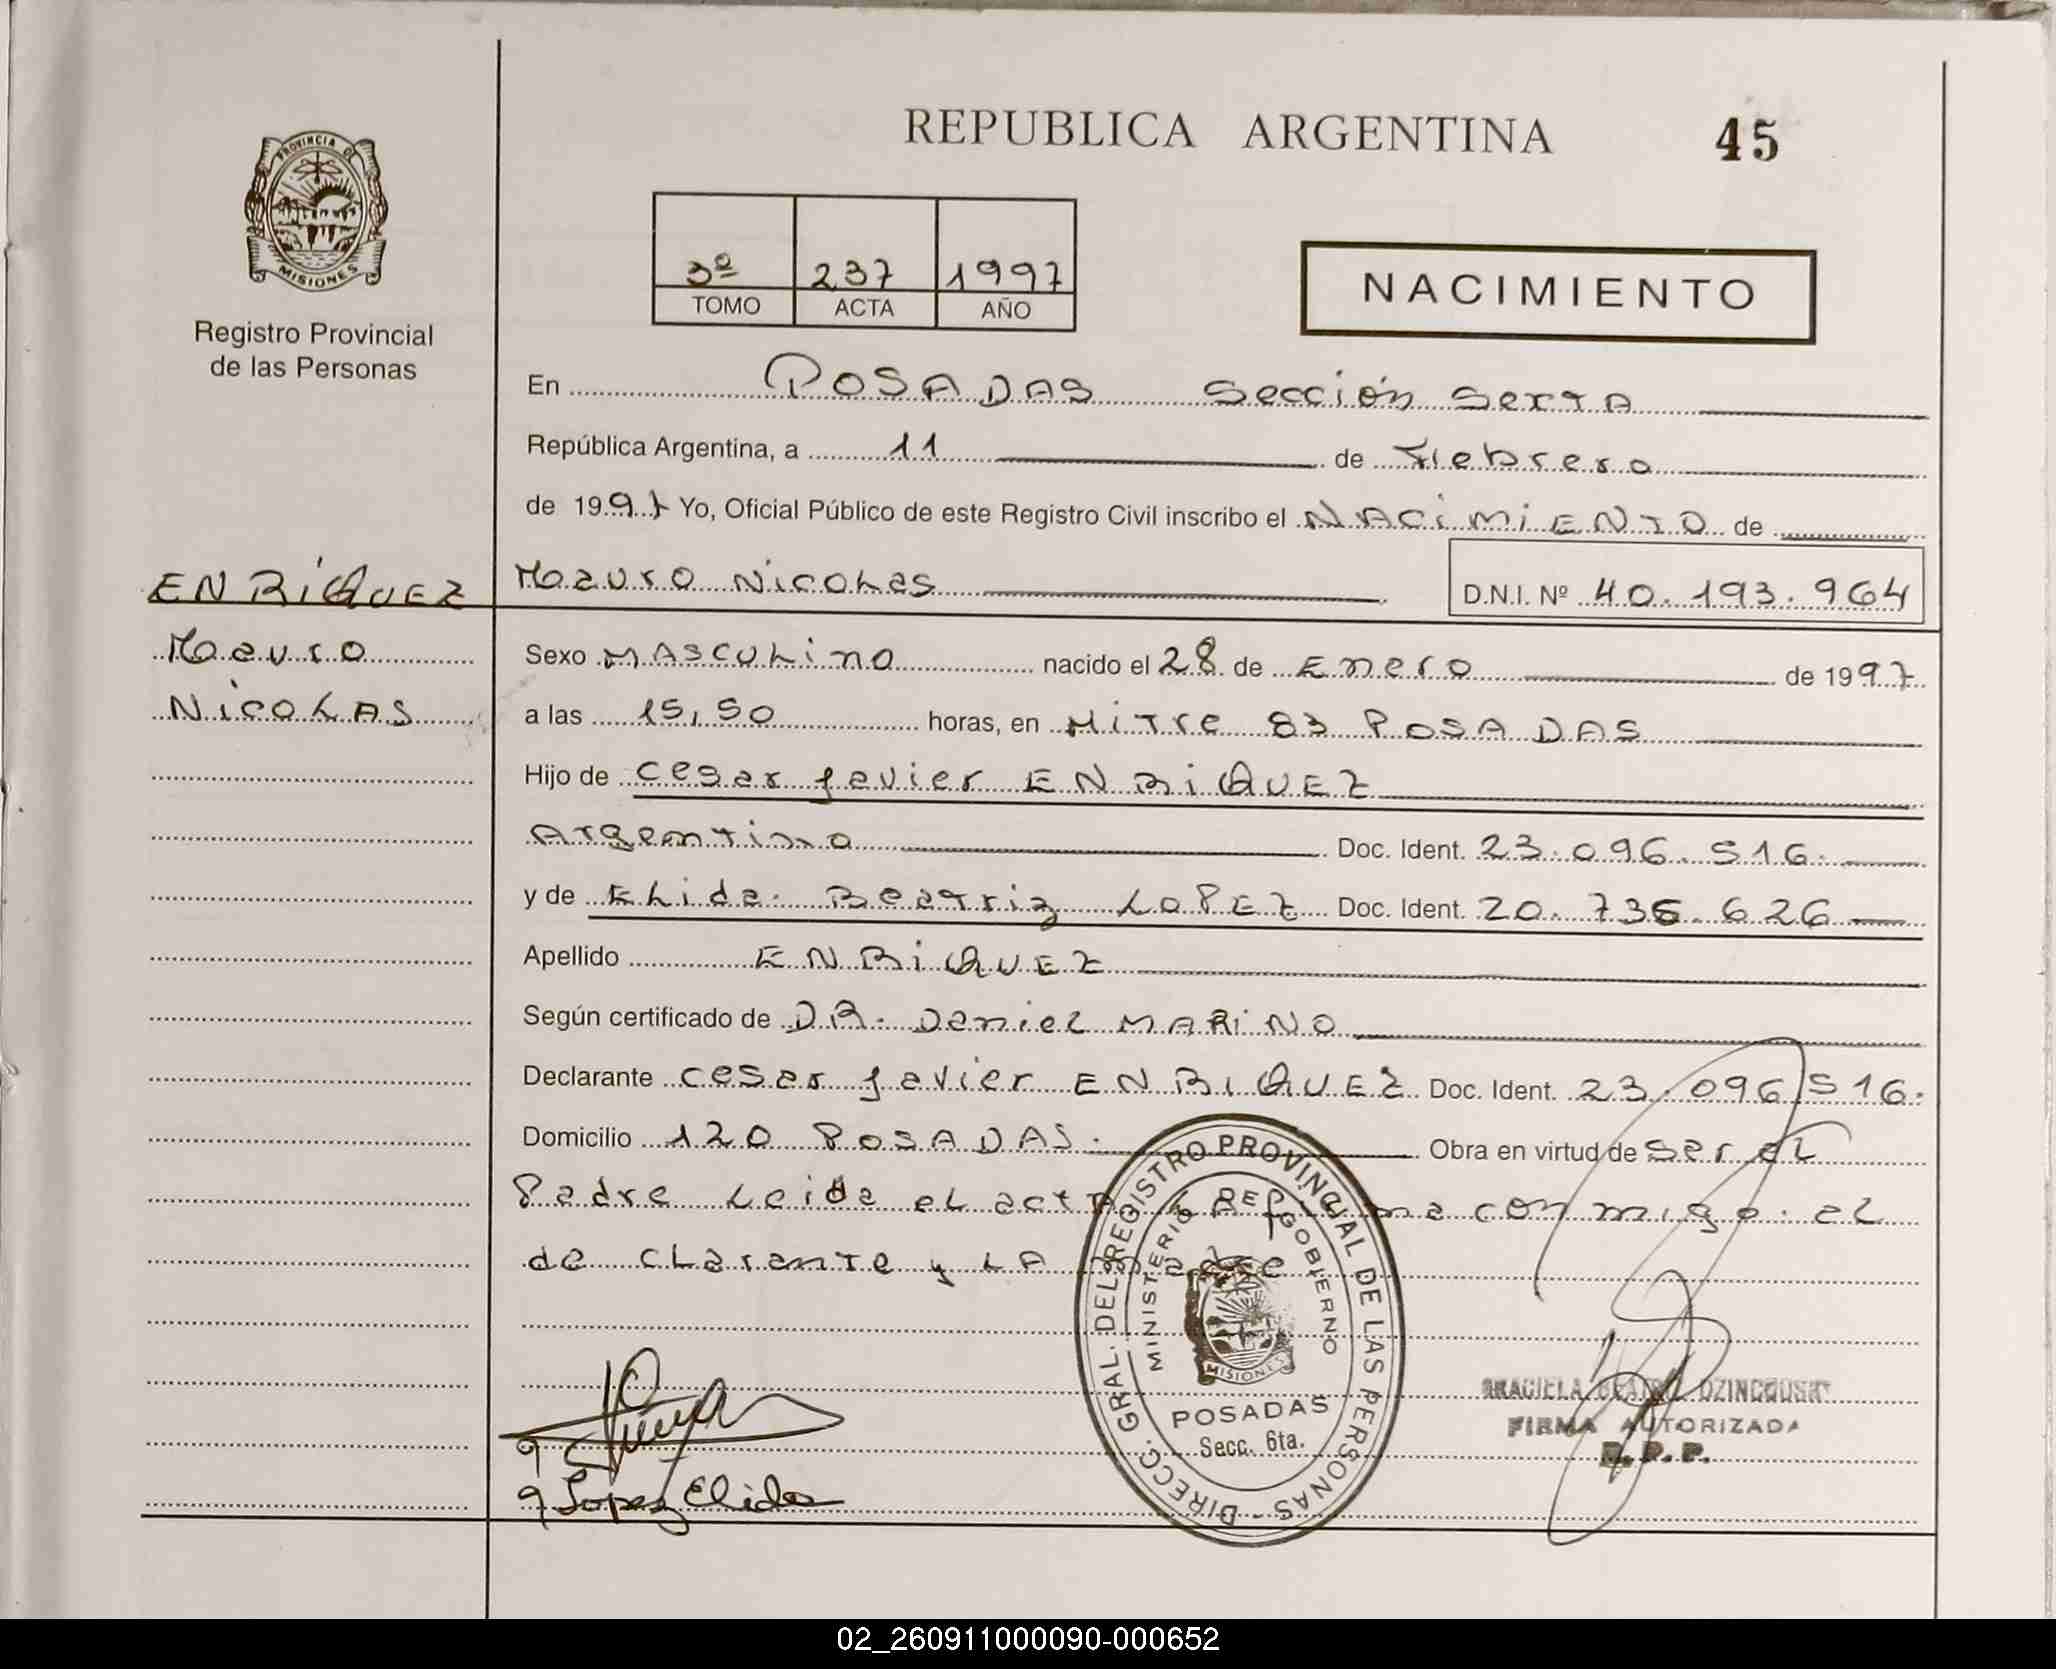 REPUBLICA ARGENTINA
45
PROVINCIA DE
MISIONES
Registro Provincial
de las Personas
3º 237 1997
TOMO ACTA AÑO
NACIMIENTO
En POSADAS Sección Sexta
República Argentina, a 11 de Febrero
de 1997 Yo, Oficial Público de este Registro Civil inscribo el NACIMIENTO de
Mauro Nicolas
D.N.I. Nº 40.193.964
ENRIQUEZ
Mauro
NICOLAS
Sexo MASCULino nacido el 28 de Enero de 1997
a las 15,50 horas, en Mitre 83 POSADAS
Hijo de Cesar Javier ENRIQUEZ
Argentino Doc. Ident. 23.096.516.
y de Elida Beatriz LOPEZ Doc. Ident. 20.736.626
Apellido ENRIQUEZ
Según certificado de DR. Daniel MARINO
Declarante Cesar Javier ENRIQUEZ Doc. Ident. 23.096.516.
Domicilio 120 POSADAS. Obra en virtud de ser el
Padre Leida el acta la firma conmigo el
declarante y LA
DIRECC. GRAL. DEL REGISTRO PROVINCIAL DE LAS PERSONAS
MINISTERIO DE GOBIERNO
MISIONES
POSADAS
Secc. 6ta.
Lopez Elida
GRACIELA BEATRIZ
FIRMA AUTORIZADA
R.P.P.
02_260911000090-000652